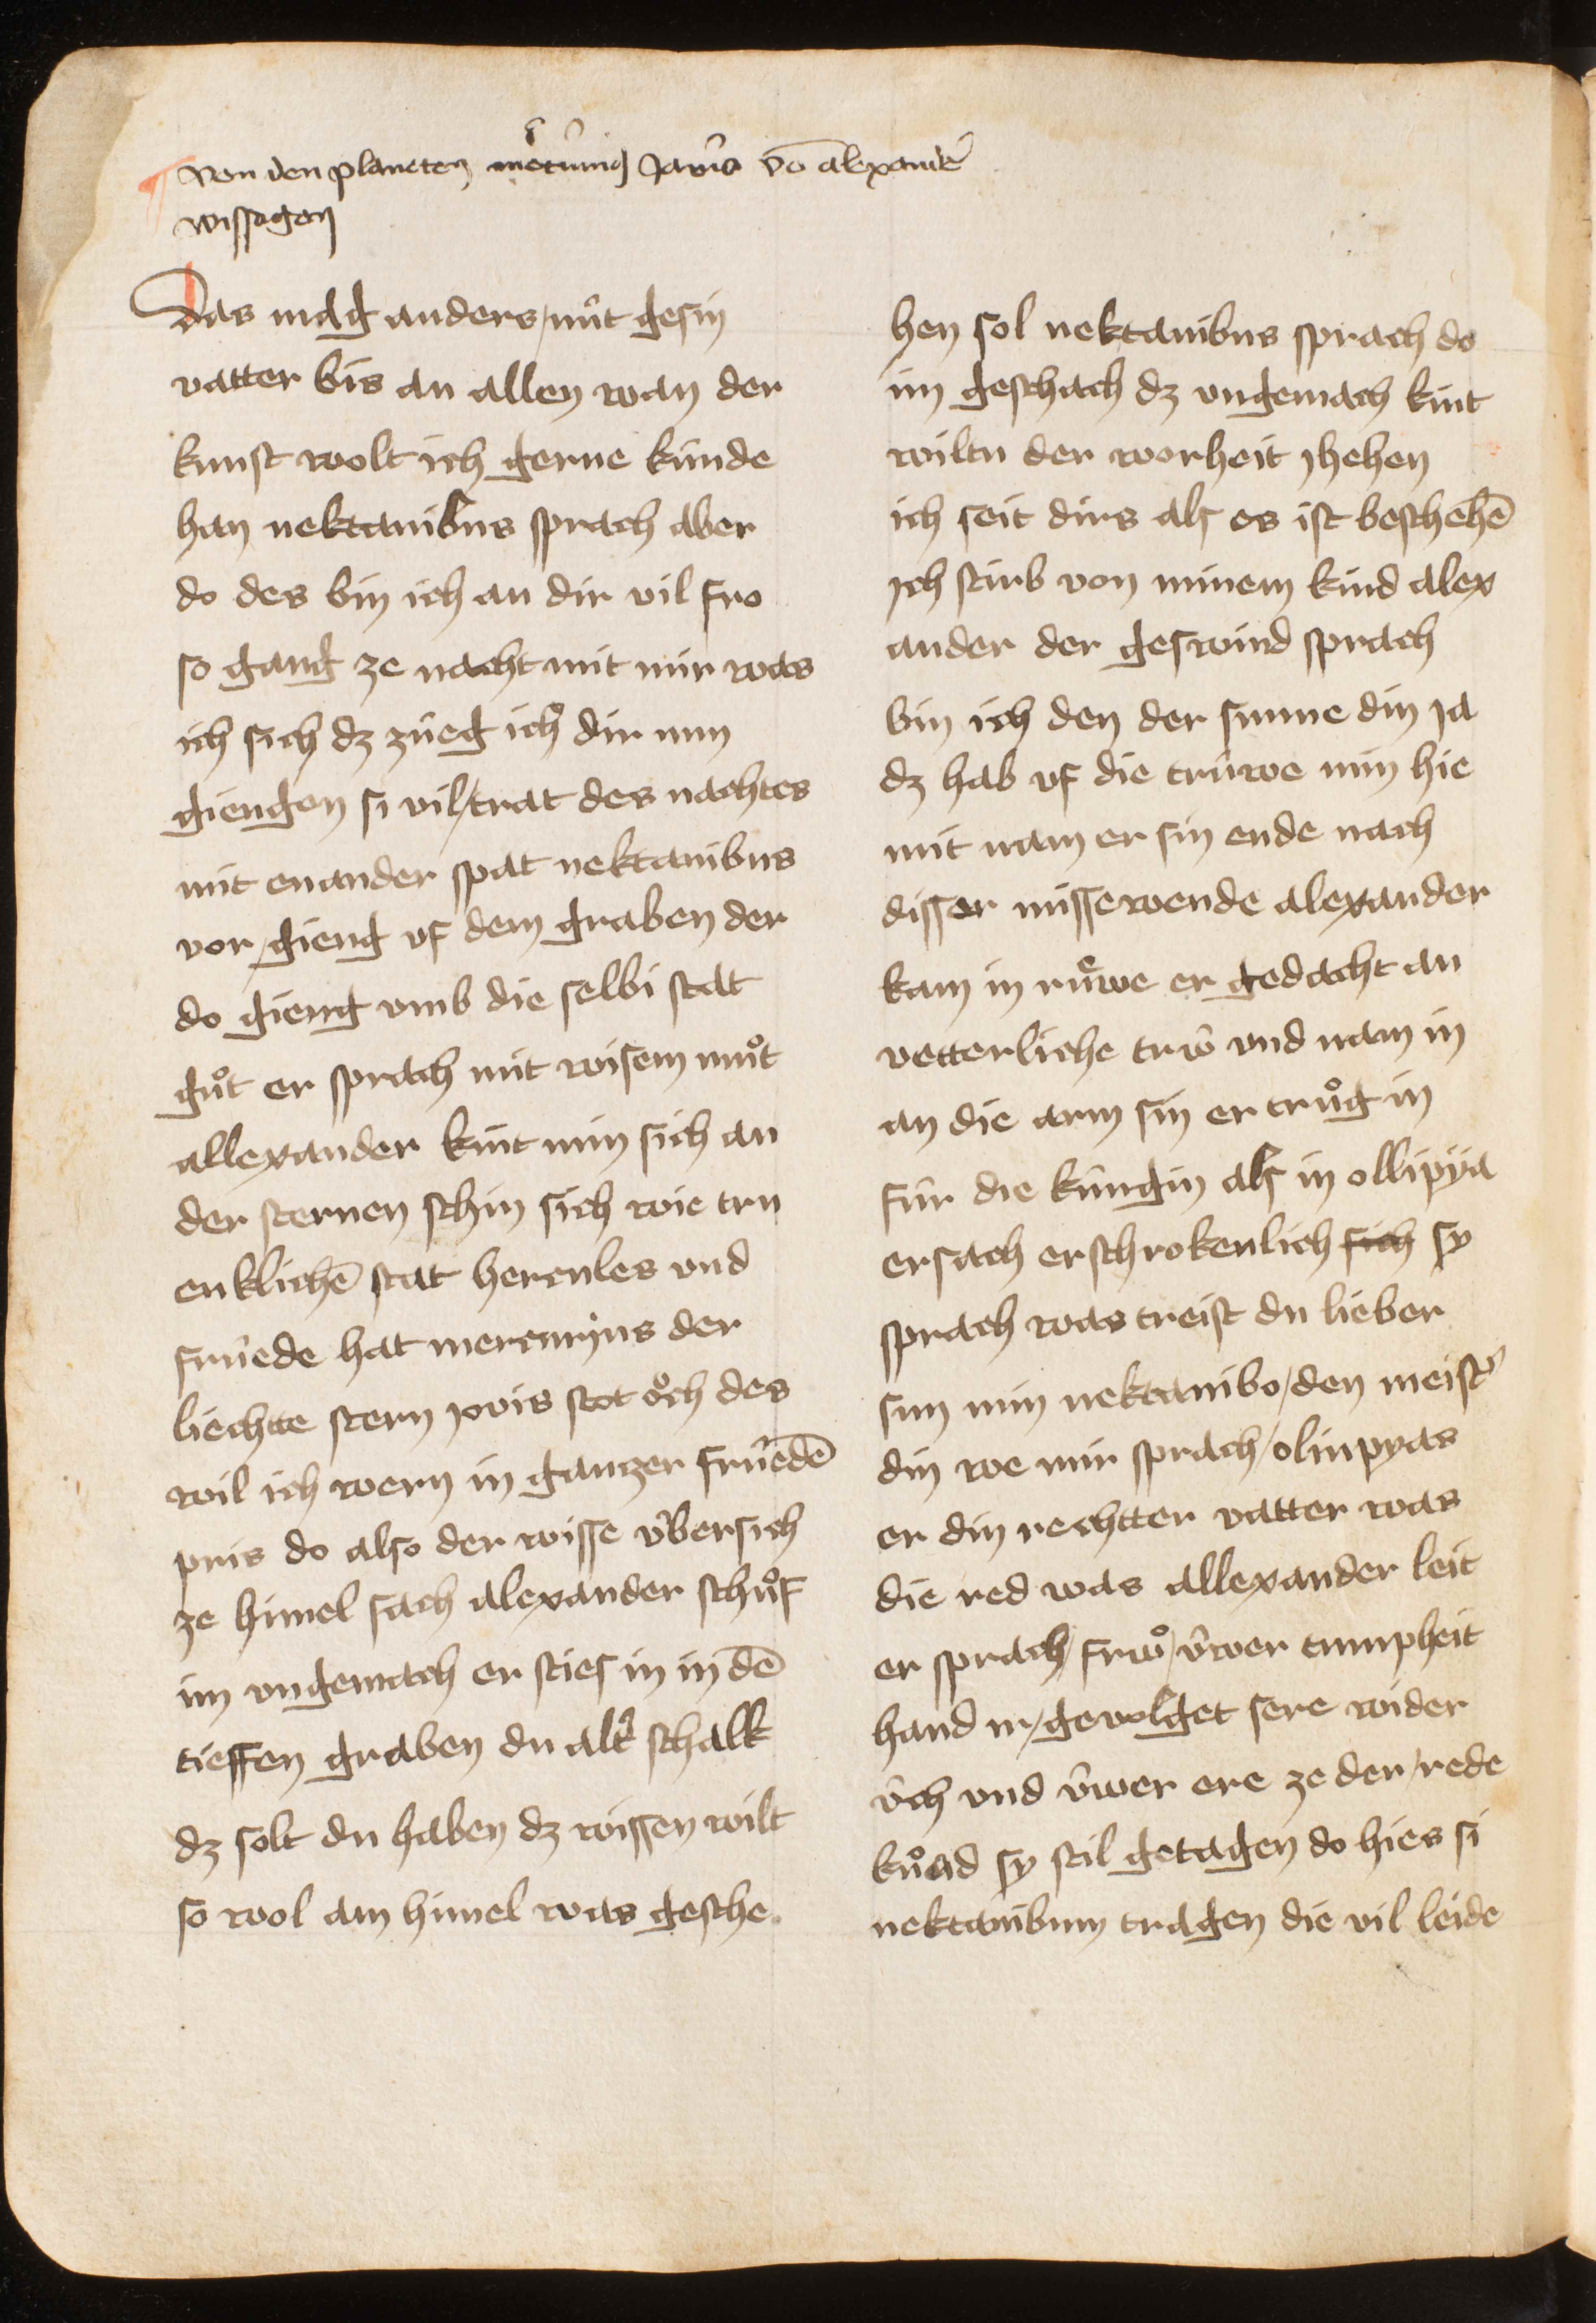 von den planeten Jovis vō alexander
wissagen
Das mag anders nüt gesin
vatter bis an allen wan der
kunst wolt ich gerne künde
han nektanibus sprach aber
do des bin ich an dir vil fro
so gang ze nacht mit mir was
ich sich dz züeg ich dir nun
giengen si vil trat des nachtes
mit enander spat nektanibus
vor gieng vf dem graben der
do gieng vmb die selbi stat
guͦt er sprach mit wisem muͦt
allexander kint min sich an
der sternen schin sich wie tru
enklichē stat hercules vnd
früede hat mercurÿus der
liechtte stern yovis stot oͧch des
wil ich wern in ganzer früedē
pris do also der wisse v̈bersich
ze himel sach alexander schuͦf
im vngemach er sties in in dē
tieffen graben du altˀ schalk
dz solt du haben dz wissen wilt
so wol am himel was gesche
hen sol nektanibus sprach do
im geschach dz vngemach kint
wiltu der worheit yhehen
ich seit dirs als es ist beschehē
ych stirb von minem kind alex
ander der geswind sprach
bin ich den der sunne din ya
dz hab vf die trüwe min hie
mit nam er sin ende nach
disser missewende alexander
kam in rüͦwe er gedacht an
vetterliche trẃ vnd nam in
an die arm sin er truͦg in
für die küngin als in ollipÿa
ersach erschrokenlich sich sy
sprach was treist du lieber
sun min nektanibo den meistˀ
din we mir sprach olinpyas
er din rechtter vatter was
die red was allexander leit
er sprach frwͦ v̈wer tumpheit
hand ir gevolget sere wider
v̈ch vnd v̈wer ere ze der rede
kuͦnd sy stil getagen do hies si
nektanibum tragen die vil leide